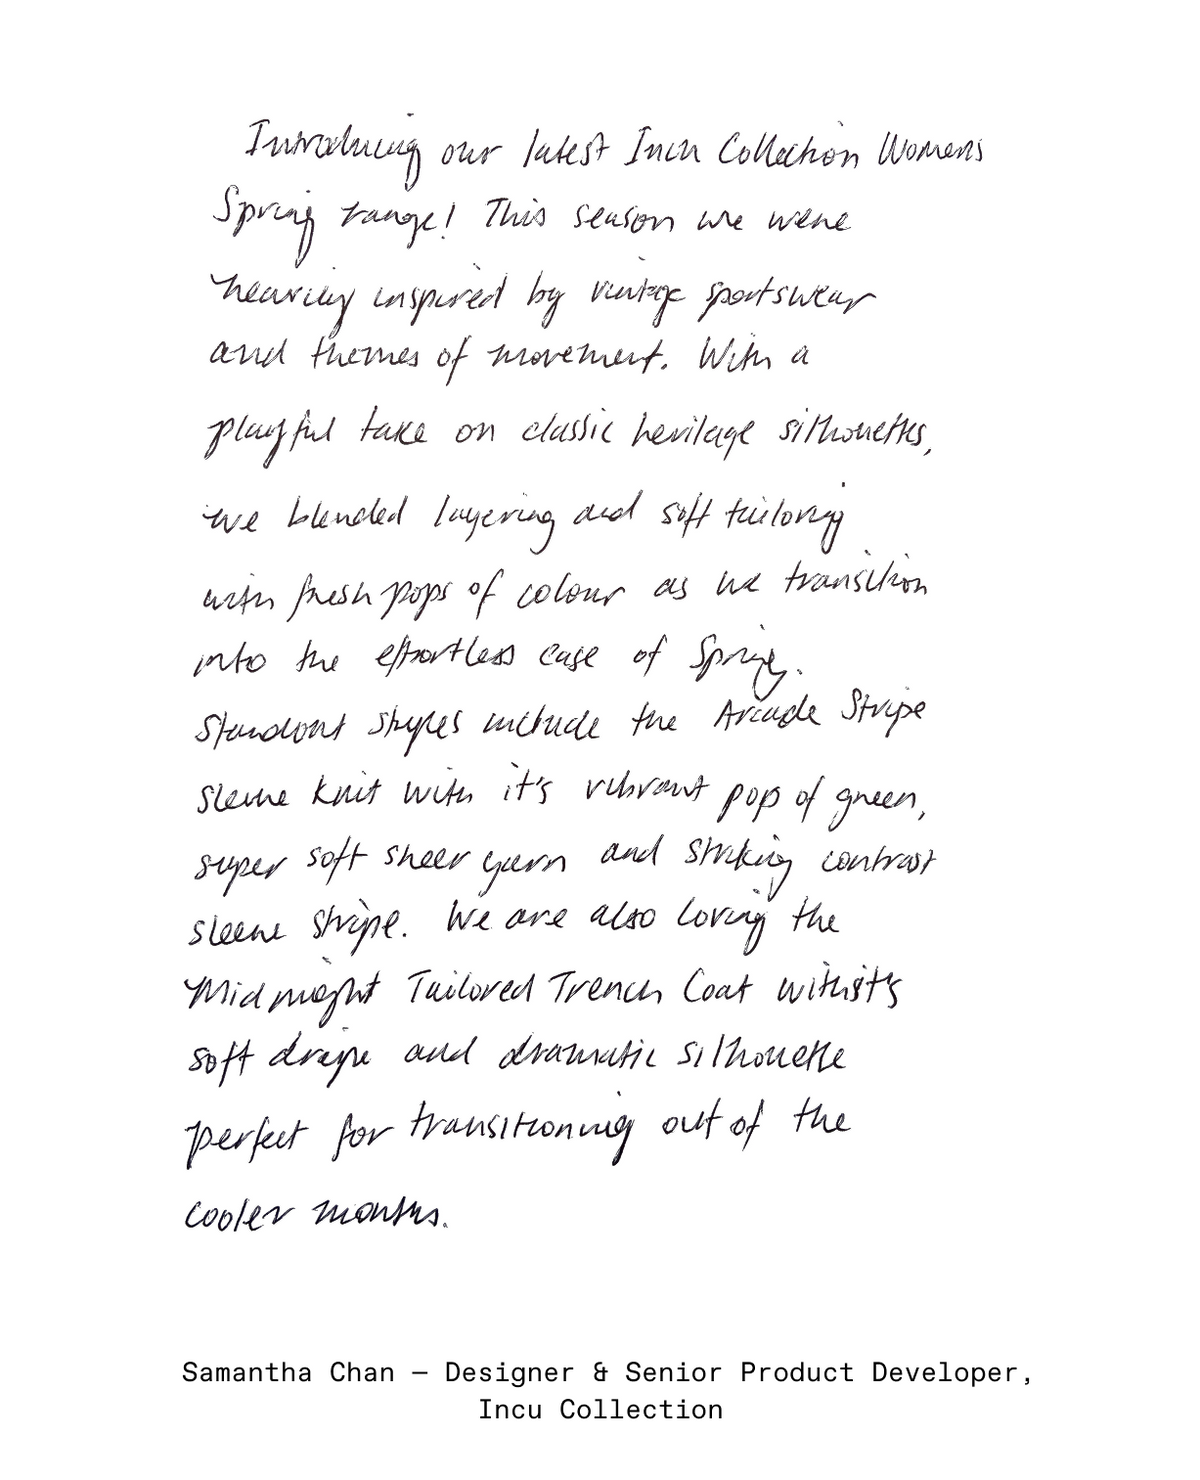 Introducing our latest Incu Collection Womens
Spring range! This season we were
heavily inspired by vintage sportswear
and themes of movement. With a
playful take on classic heritage silhouettes,
we blended layering and soft tailoring
with fresh pops of colour as we transition
into the effortless ease of Spring.
Standout styles include the Arcade Stripe
sleeve knit with it's vibrant pop of green,
super soft sheer yarn and striking contrast
sleeve stripe. We are also loving the
Midnight Tailored Trench Coat with it's
soft drape and dramatic silhouette
perfect for transitioning out of the
cooler months.
Samantha Chan – Designer & Senior Product Developer,
Incu Collection